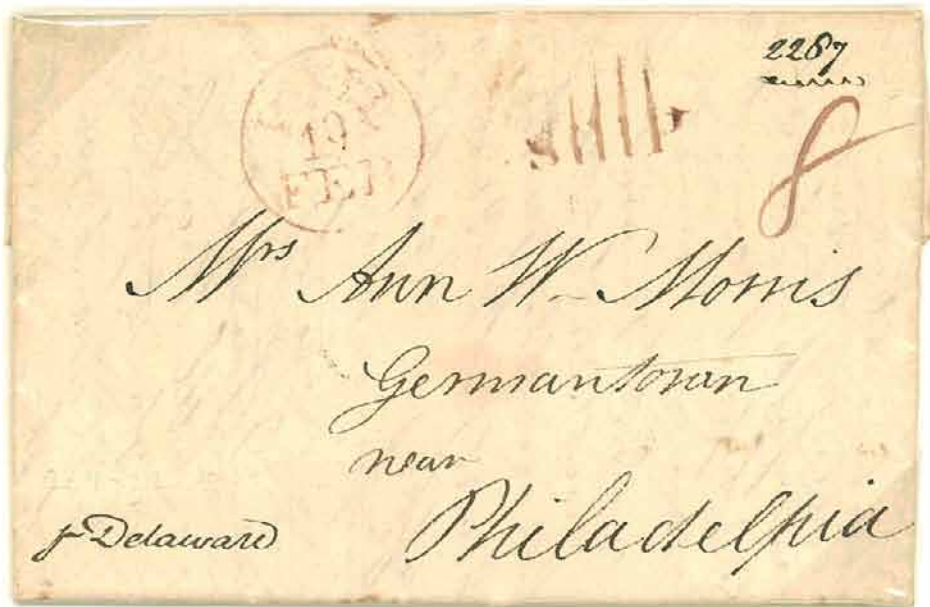 2267
19
FEB
SHIP
8
Mrs Ann W. Morris
Germantown
near
Philadelphia
pr Delaware